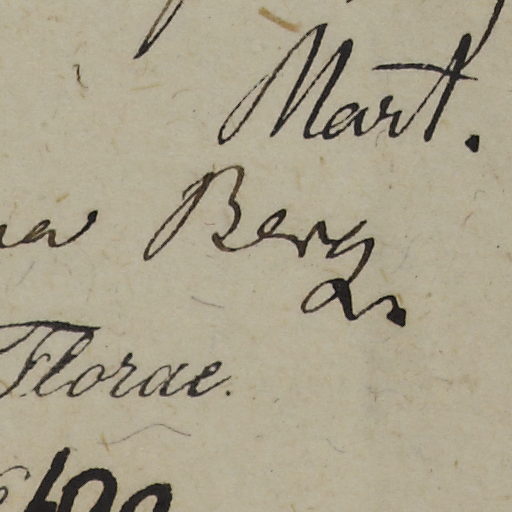 Mart.
Berg.
Florae.